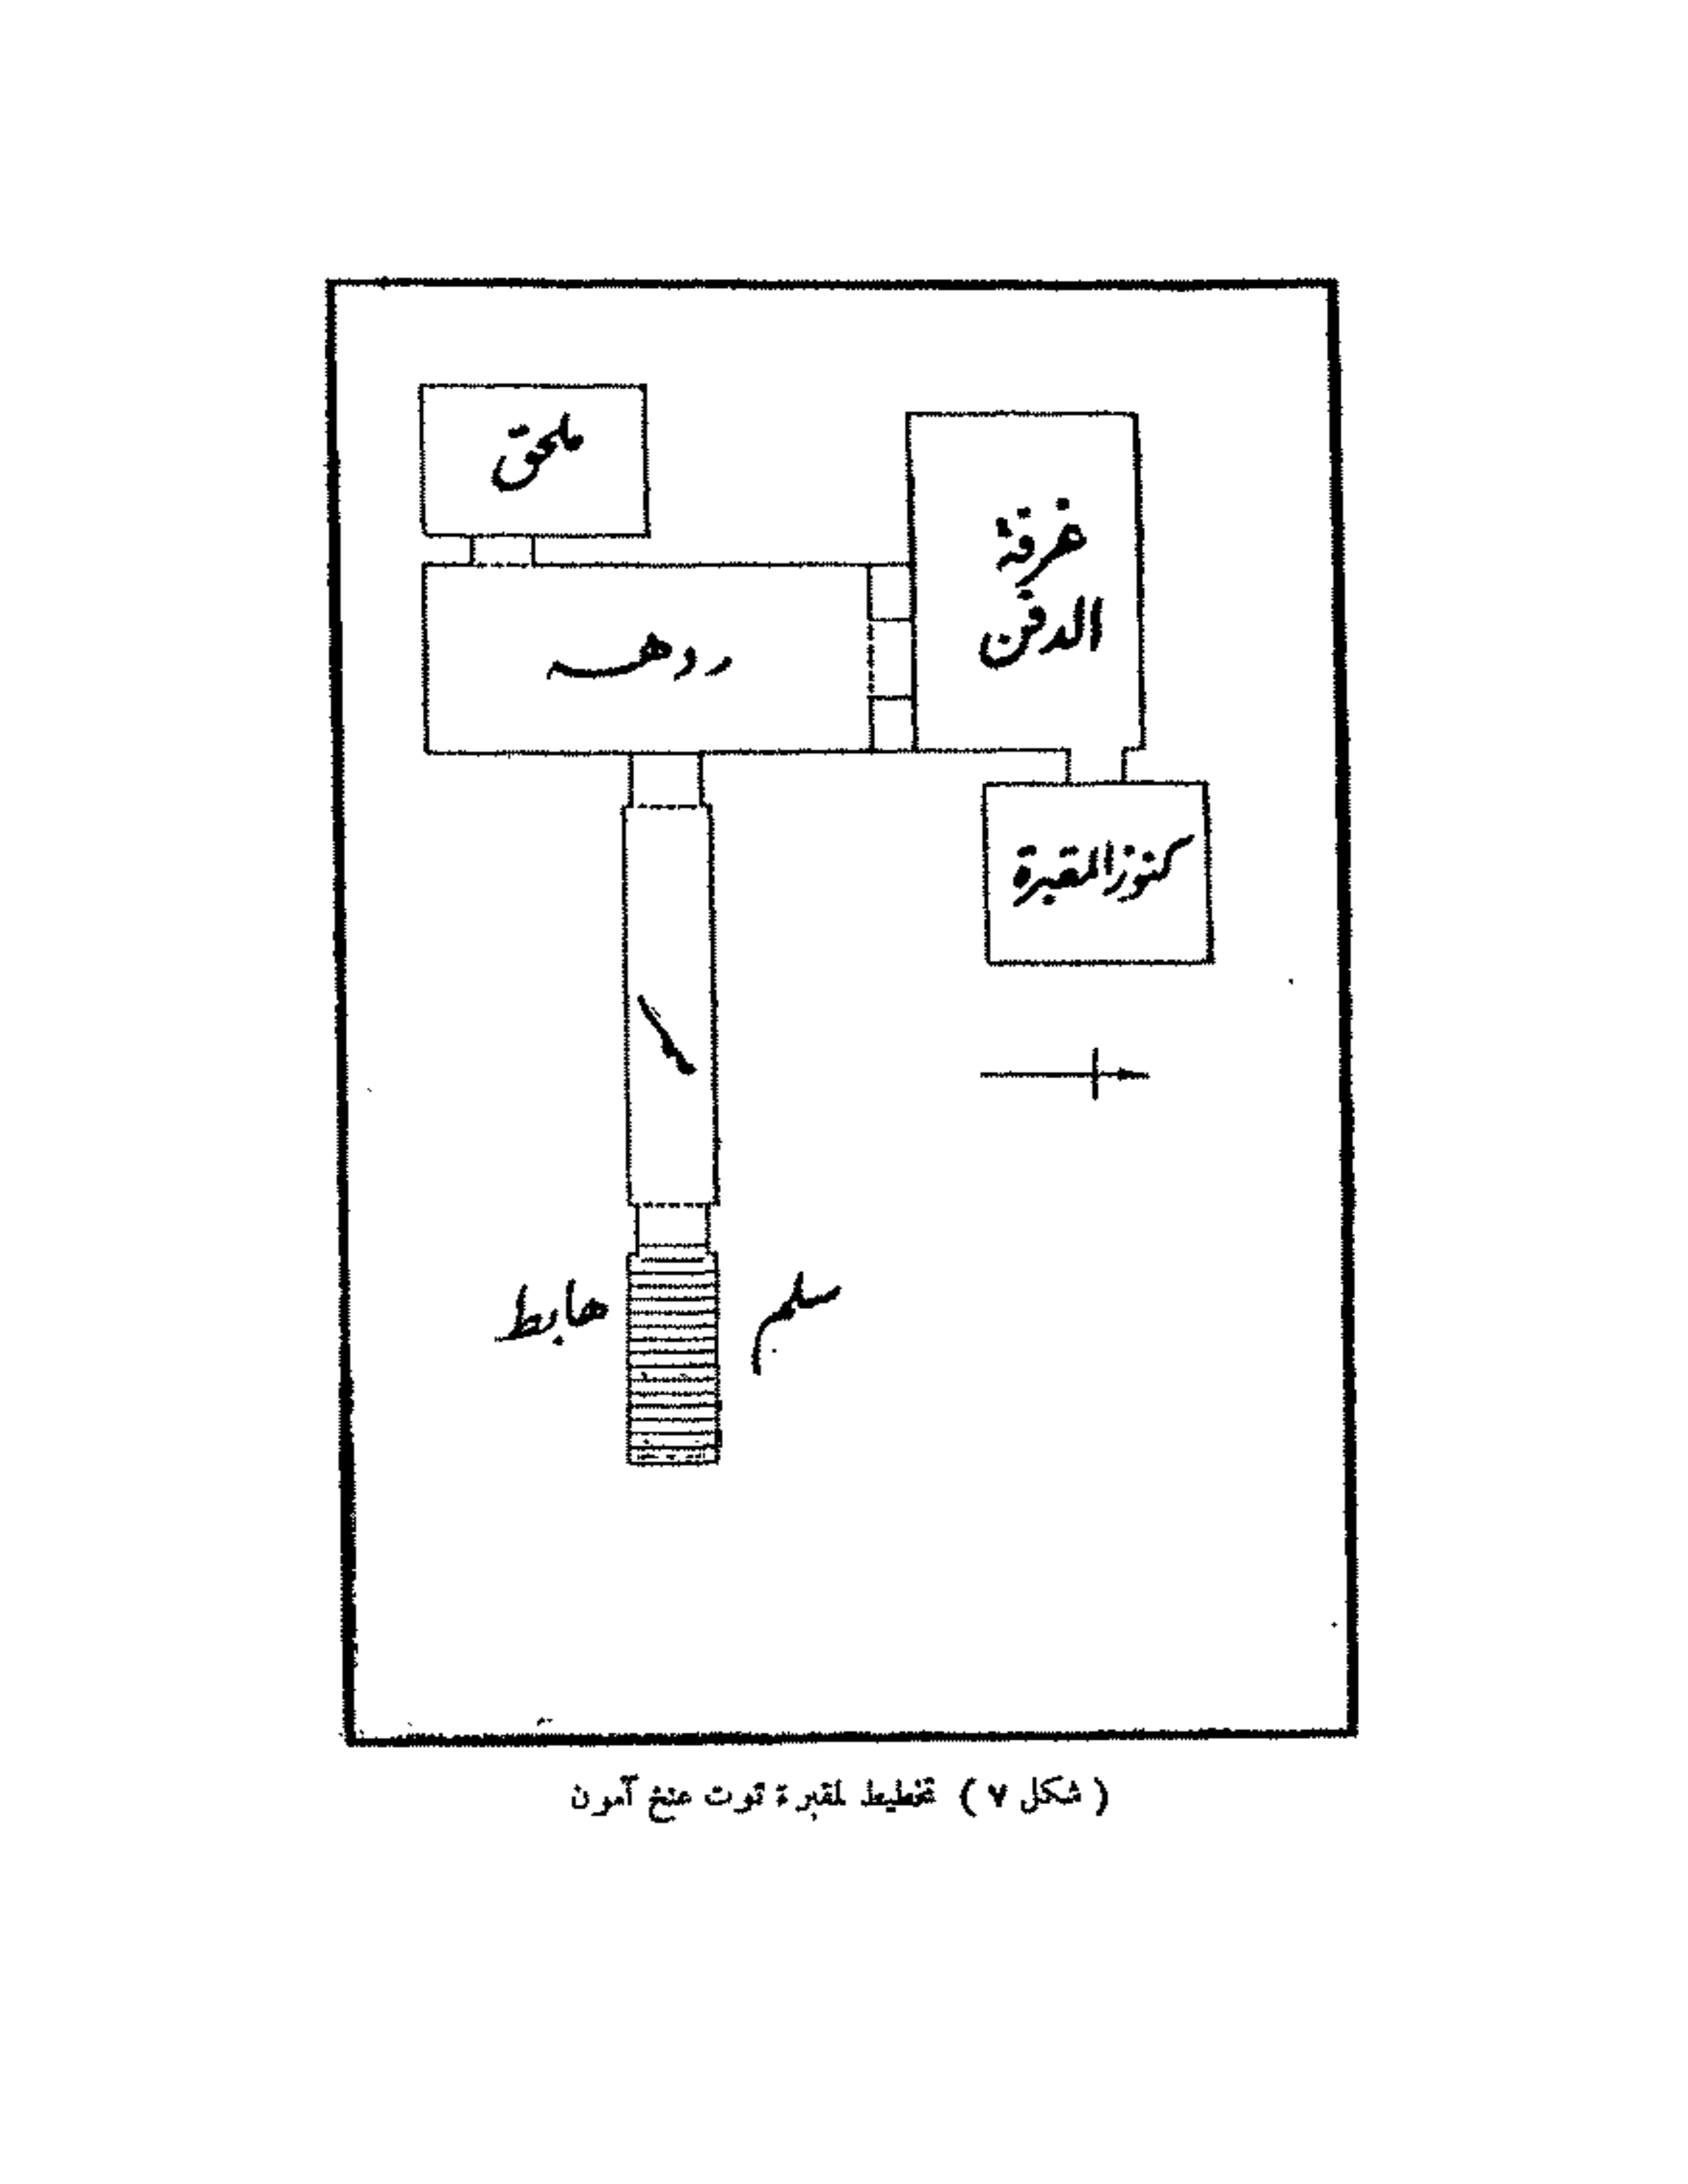 ملحق
غرفة
الدفن
ردهه
كنوز المقبرة
سلم
هابط
( شكل ٧ ) تخطيط لمقبرة توت عنخ آمون